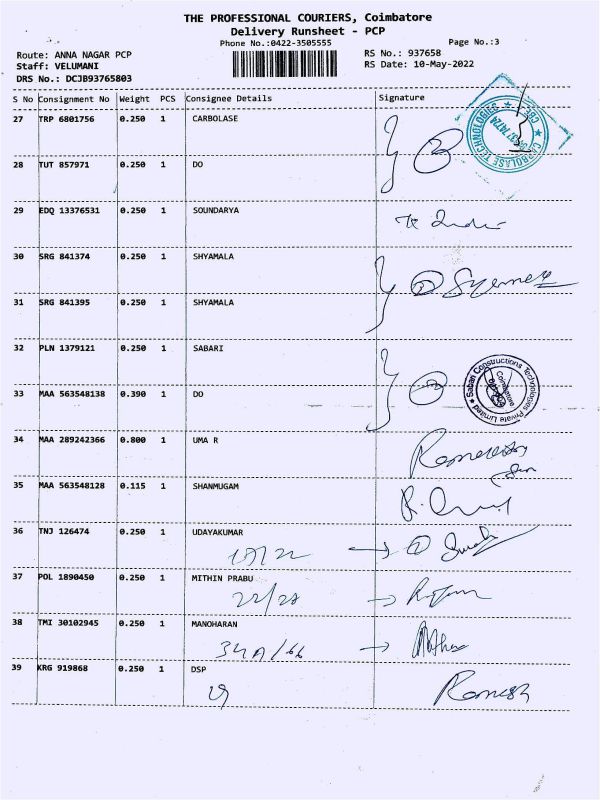 THE PROFESSIONAL COURIERS, Coimbatore
Delivery Runsheet - PCP
Phone No.:0422-3505555
Page No.:3
Route: ANNA NAGAR PCP
RS No.: 937658
Staff: VELUMANI
RS Date: 10-May-2022
DRS No.: DCJB93765803
S No Consignment No Weight PCS Consignee Details Signature
27 TRP 6801756 0.250 1 CARBOLASE
CARBOLASE TECHNOLOGIES ★ CBE ★
28 TUT 857971 0.250 1 DO
29 EDQ 13376531 0.250 1 SOUNDARYA
30 SRG 841374 0.250 1 SHYAMALA
31 SRG 841395 0.250 1 SHYAMALA
32 PLN 1379121 0.250 1 SABARI
Sabari Constructions Technologies Private Limited ★ Coimbatore
33 MAA 563548138 0.390 1 DO
34 MAA 289242366 0.800 1 UMA R
35 MAA 563548128 0.115 1 SHANMUGAM
36 TNJ 126474 0.250 1 UDAYAKUMAR
37 POL 1890450 0.250 1 MITHIN PRABU
38 TMI 30102945 0.250 1 MANOHARAN
34A/66
39 KRG 919868 0.250 1 DSP
19 Ramesh